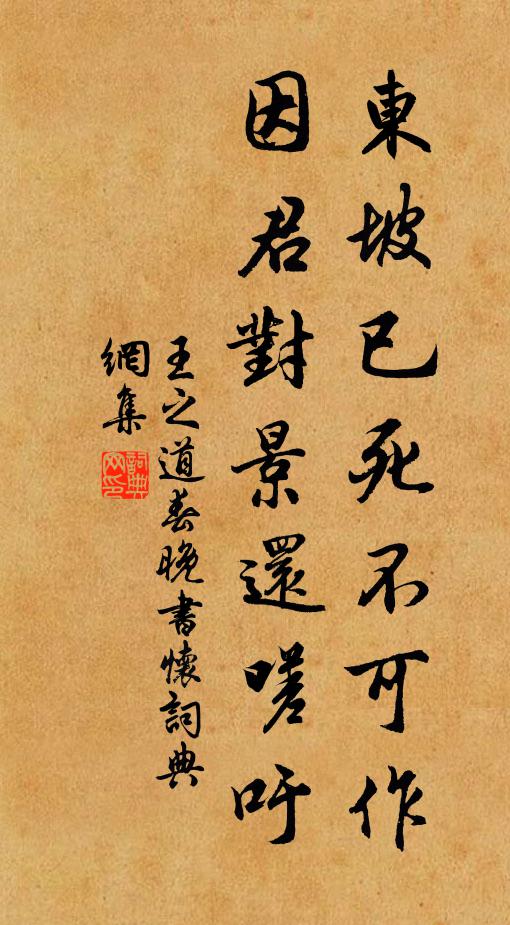 東坡已死不可作
因君對景還嗟吁
王之道春晚書懷詞典
網集
詞典
网印